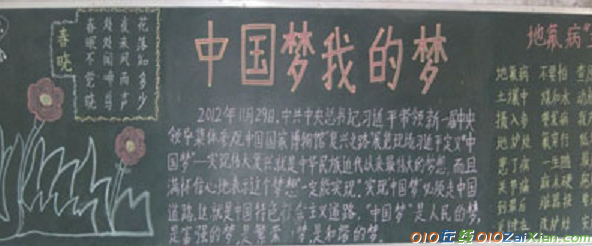 春晓
春眠不觉晓
处处闻啼鸟
夜来风雨声
花落知多少
中国梦我的梦
2012年11月29日,中共中央总书记习近平带领新一届中央
领导集体参观中国国家博物馆“复兴之路”展览现场习近平定义“中
国梦”—实现伟大复兴就是中华民族近代以来最伟大的梦想,而且
满怀信心地表示这个梦想一定能实现。实现中国梦必须走中国
道路,这就是中国特色社会主义道路。“中国梦”是人民的梦,
是富强的梦是繁荣的梦,是和谐的梦
地氟病
地氟病 不要怕
土壤中 煤和水
摄入多
患了病 一生
关节痛 麻木硬
010在线 010ZaiXian.com